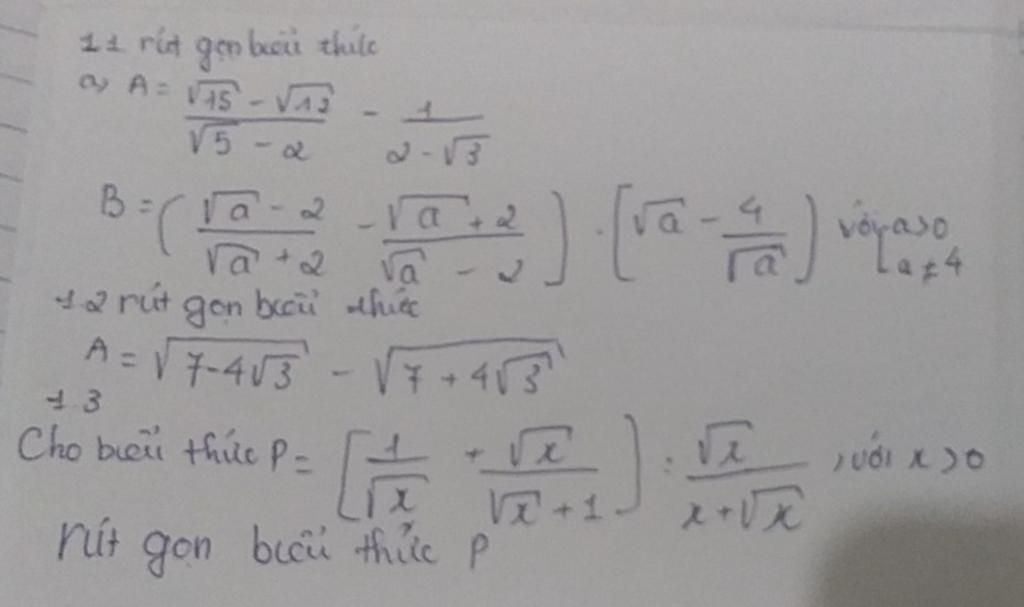 1.1 rút gọn biểu thức
a, A = \frac{\sqrt{15} - \sqrt{12}}{\sqrt{5} - 2} - \frac{1}{2 - \sqrt{3}}
B = ( \frac{\sqrt{a} - 2}{\sqrt{a} + 2} - \frac{\sqrt{a} + 2}{\sqrt{a} - 2} ) . ( \sqrt{a} - \frac{4}{\sqrt{a}} ) với a > 0 a ≠ 4
1.2 rút gọn biểu thức
A = \sqrt{7 - 4\sqrt{3}} - \sqrt{7 + 4\sqrt{3}}
1.3
Cho biểu thức P = [ \frac{1}{\sqrt{x}} + \frac{\sqrt{x}}{\sqrt{x} + 1} ] : \frac{\sqrt{x}}{x + \sqrt{x}} , với x > 0
rút gọn biểu thức P